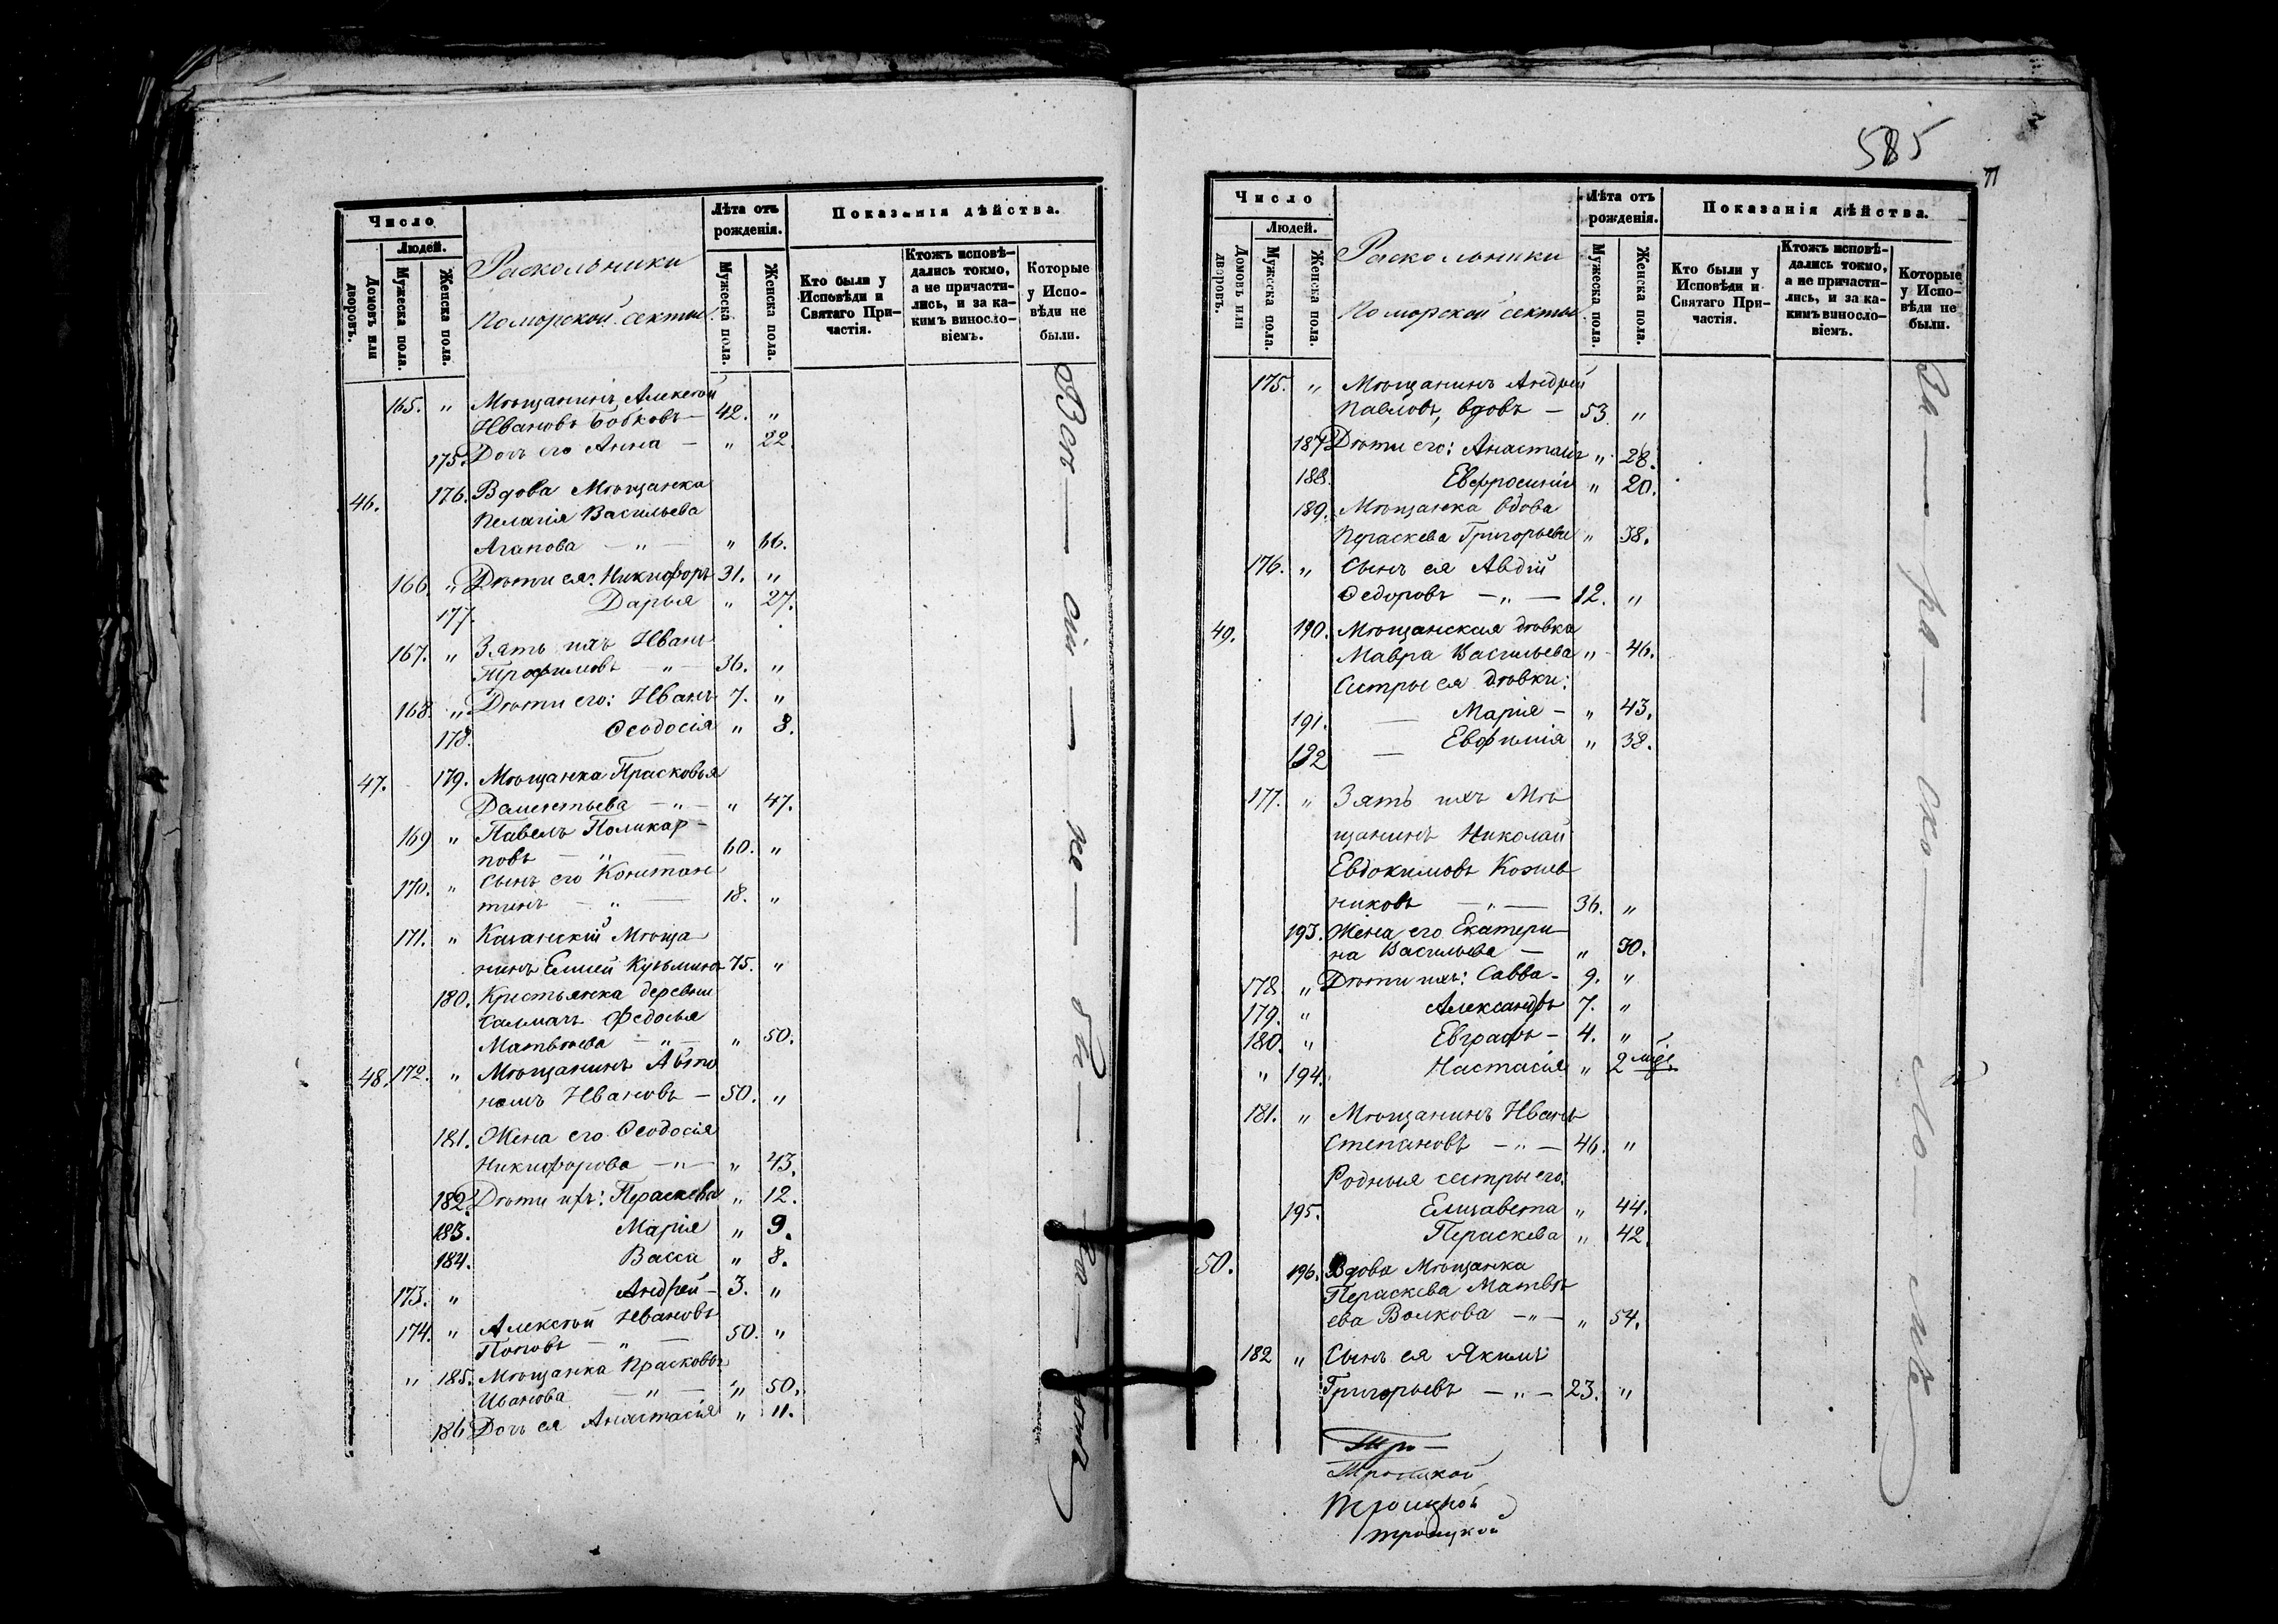 Число
Людей.
Домовъ или дворовъ.
Мужеска пола.
Женска пола.
Раскольники
Поморской секты.
Лѣта отъ рожденія.
Мужеска пола.
Женска пола.
Показанія дѣйства.
Кто были у Исповѣди и Святаго Причастія.
Ктожъ исповѣдались токмо, а не причастились, и за какимъ винословіемъ.
Которые у Исповѣди не были.
165. " Мѣщанинъ Алексѣй
Ивановъ Бобковъ — 42. "
175. Дочь его Анна — " 22.
46. 176. Вдова Мѣщанка
Пелагія Васильева
Агапова — " — " 66.
166. " Дѣти ея: Никифоръ 31. "
177. Дарья " 27.
167. " Зять ихъ Иванъ
Трофимовъ — " — 36. "
168. " Дѣти его: Иванъ 7. "
178. Ѳеодосія " 3.
47. 179. Мѣщанка Прасковья
Дементьева — " — " 47.
169 " Павелъ Поликар-
повъ — " — 60. "
170. " Сынъ его Констан-
тинъ — " — 18. "
171. " Казанскій Мѣща-
нинъ Елисей Кузьминъ 75. "
180. Крестьянка деревни
Салмачъ Федосья
Матвѣева — " — " 50.
48. 172. " Мѣщанинъ Авто
номъ Ивановъ — 50. "
181. Жена его Ѳеодосія
Никифорова — " — " 43.
182. Дѣти ихъ: Параскева " 12.
183. Марія " 9.
184. Васса " 8.
173. " Андрей — 3. "
174. " Алексѣй Ивановъ
Поповъ — " — 50. "
" 185. Мѣщанка Прасковья
Иванова — " — " 50.
186 Дочь ея Анастасія " 11.
585
Число
Людей.
Домовъ или дворовъ.
Мужеска пола.
Женска пола.
Раскольники
Поморской секты.
Лѣта отъ рожденія.
Мужеска пола.
Женска пола.
Показанія дѣйства.
Кто были у Исповѣди и Святаго Причастія.
Ктожъ исповѣдались токмо, а не причастились, и за какимъ винословіемъ.
Которые у Исповѣди не были.
175. " Мѣщанинъ Андрей
Павловъ, вдовъ — 53 "
187 Дѣти его: Анастасія " 28.
188. Евфросинія " 20.
189. Мѣщанка вдова
Параскева Григорьева " 38.
176. " Сынъ ея Авдій
Ѳедоровъ — " — 12. "
49. 190. Мѣщанская дѣвка
Мавра Васильева " 46.
Сестры ея дѣвки:
191. — Марія — " 43.
192 — Евфимія " 38.
177. " Зять ихъ Мѣ
щанинъ Николай
Евдокимовъ Кожев
никовъ — " — 36. "
193. Жена его Екатери-
на Васильева — " 30.
178. " Дѣти ихъ: Савва - 9. "
179. " Александръ 7. "
180. " Евграфъ — 4. "
" 194. Настасія " 2
181. " Мѣщанинъ Иванъ
Степановъ — " — 46. "
Родныя сестры его:
195. Елизавета " 44.
Параскева " 42.
50. 196. Вдова Мѣщанка
Параскева Матвѣ
ева Волкова — " — " 54.
182 " Сынъ ея Якимъ
Григорьевъ — " — 23. "
Тро—
Троицкой
Троицкой
троицкой